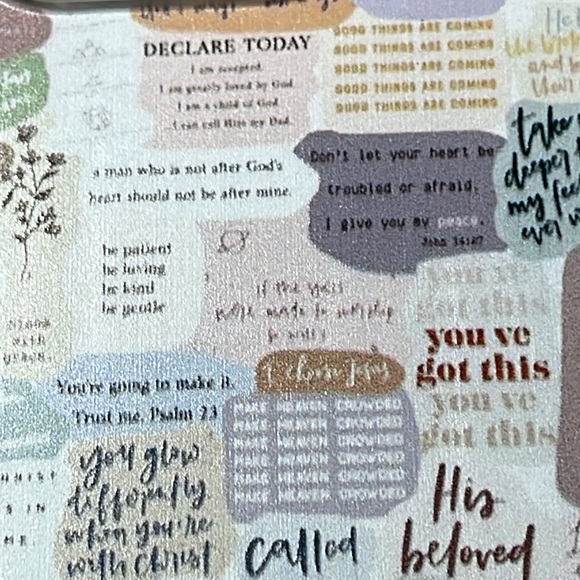 DECLARE TODAY
I am accepted.
I am greatly loved by God.
I am a child of God.
I can call Him my Dad.
GOOD THINGS ARE COMING
GOOD THINGS ARE COMING
GOOD THINGS ARE COMING
GOOD THINGS ARE COMING
GOOD THINGS ARE COMING
He
and
take
deeper
my fee
ever
a man who is not after God's
heart should not be after mine.
Don't let your heart be
troubled or afraid.
I give you my peace.
John 14:27
be patient
be loving
be kind
be gentle
if the
were made to worship
so will I
you've
got this
you've
got this
you've
got this
You're going to make it.
Trust me. Psalm 23
I choose joy
MAKE HEAVEN CROWDED
MAKE HEAVEN CROWDED
MAKE HEAVEN CROWDED
MAKE HEAVEN CROWDED
MAKE HEAVEN CROWDED
MAKE HEAVEN CROWDED
you glow
differently
when you're
with Christ
called
His
beloved
IN
ME.